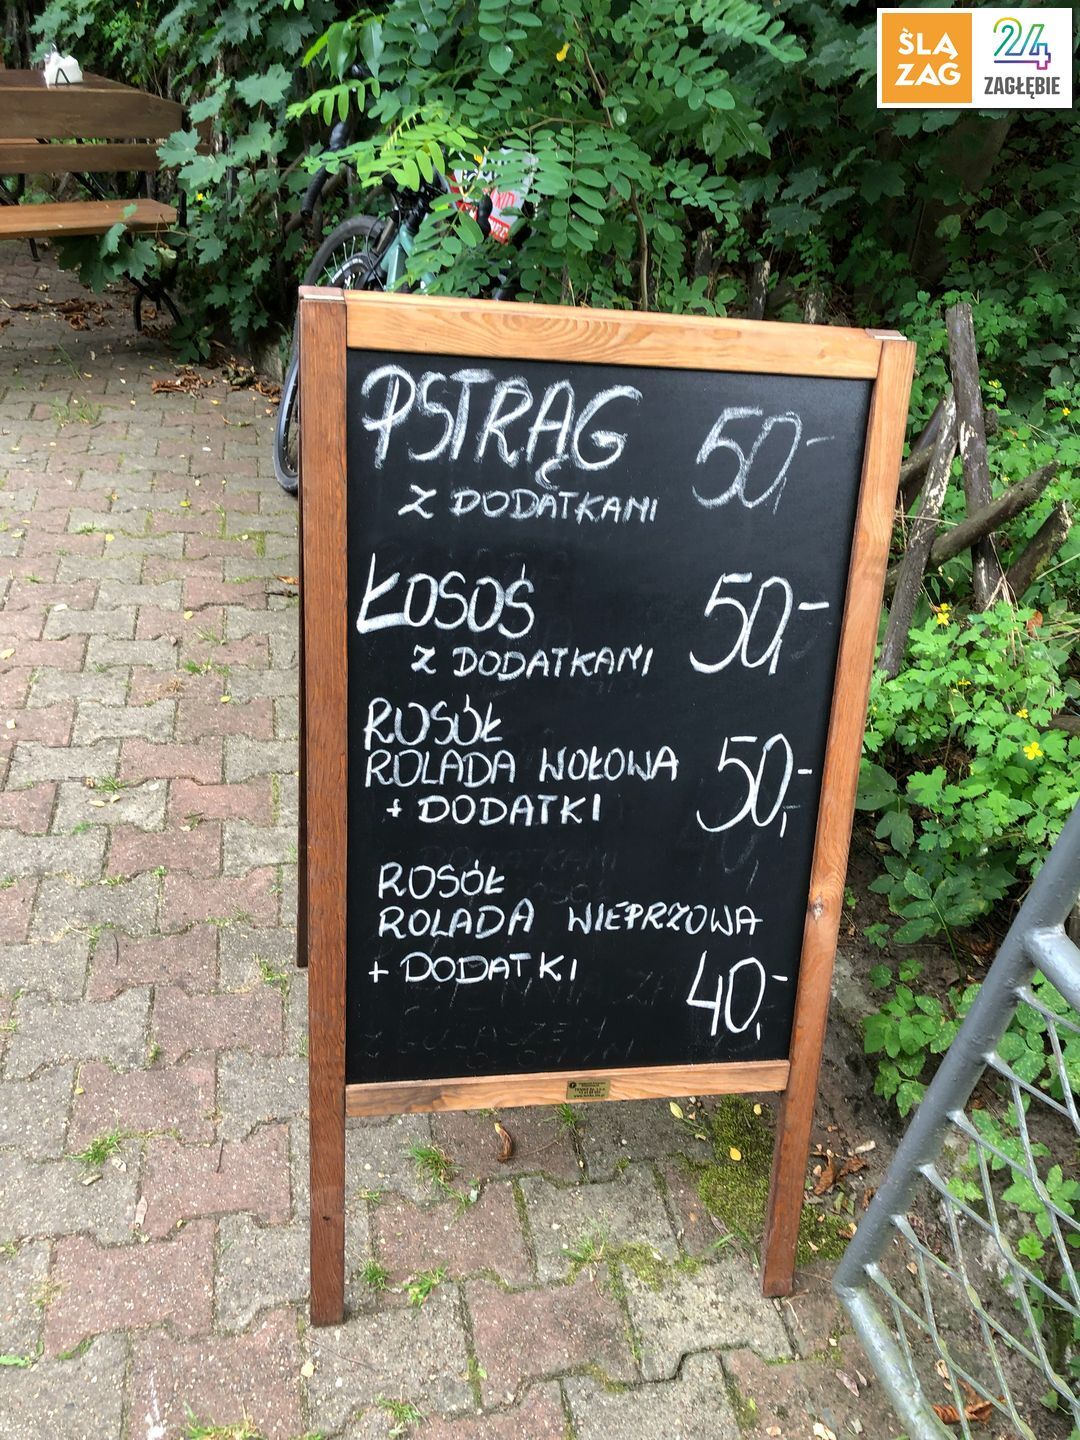 ŚLĄ
ZAG
24
ZAGŁĘBIE
PSTRĄG 50,-
Z DODATKAMI
ŁOSOŚ 50,-
Z DODATKAMI
ROSÓŁ
ROLADA WOŁOWA 50,-
+ DODATKI
ROSÓŁ
ROLADA WIEPRZOWA
+ DODATKI 40,-